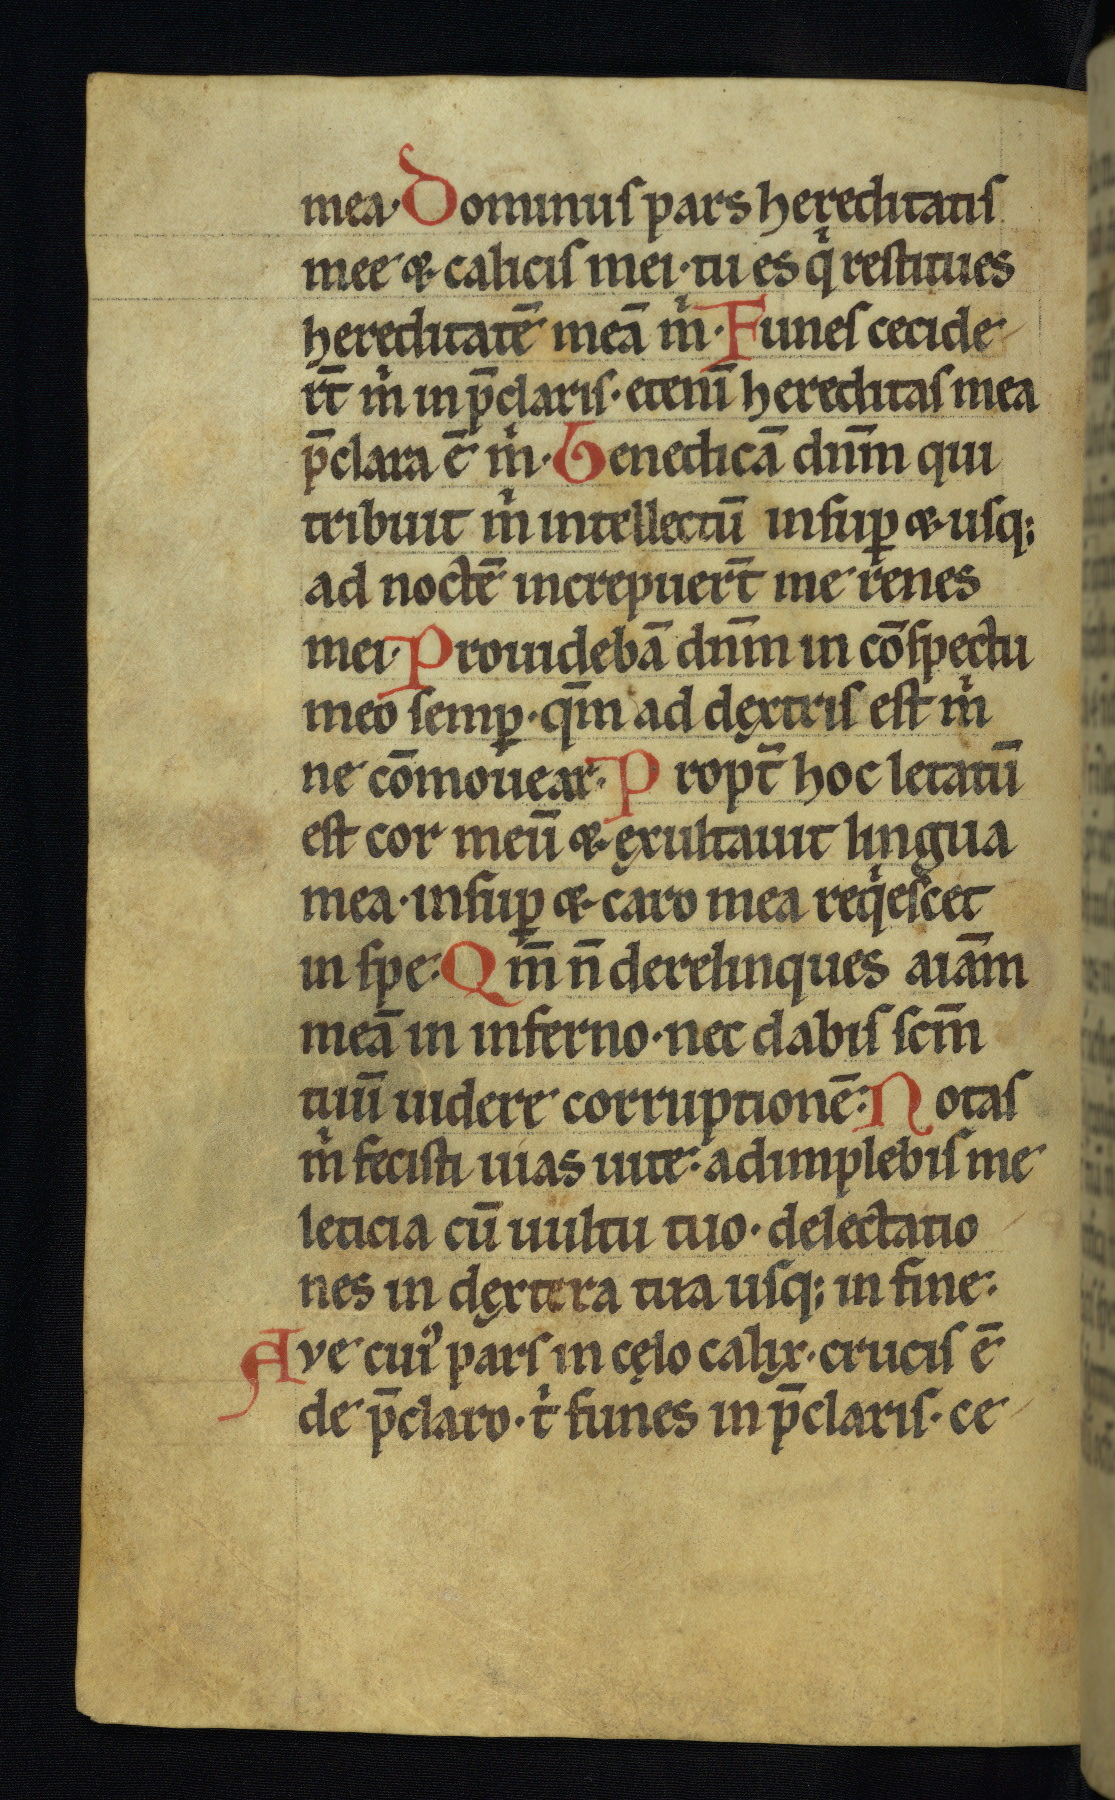 mea· Dominus pars hereditatis
mee & calicis mei· tu es qͥ restitues
hereditatē meā mͥ· Funes cecide
rt̄ mͥ in p̄claris· etenī hereditas mea
p̄clara ē mͥ· Benedicā dnm̄ qui
tribuit mͥ intellectū insuꝑ & usq;
ad noctē increpuert̄ me renes
mei· Prouidebā dnm̄ in cōspectu
meo semꝑ· qm̄ ad dextris est mͥ
ne cōmouear· Propt̄ hoc letatū
est cor meū & exultauit lingua
mea· insuꝑ & caro mea reqͥescet
in spe: Qm̄ n̄ derelinques aiām
meā in inferno· nec dabis scm̄
tuū uidere corruptionē: Notas
mͥ fecisti uias uite: adimplebis me
leticia cū uultu tuo· delectatio
nes in dextera tua usq; in fine·
Ave cuiꝰ pars in cęlo calix· crucis ē
de p̄claro· tͥ funes in p̄claris· ce